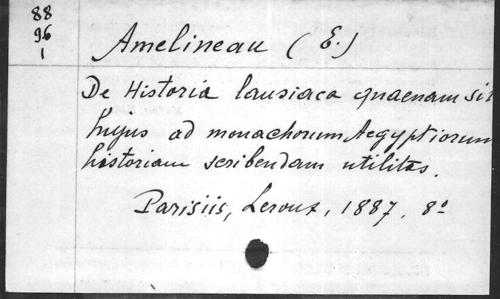 88
96
1
Amelineau (E.)
De Historia lausiaca quaenam sit
hujus ad monachorum Aegyptiorum
historiam scribendam utilitas.
Parisiis, Leroux, 1887. 8º